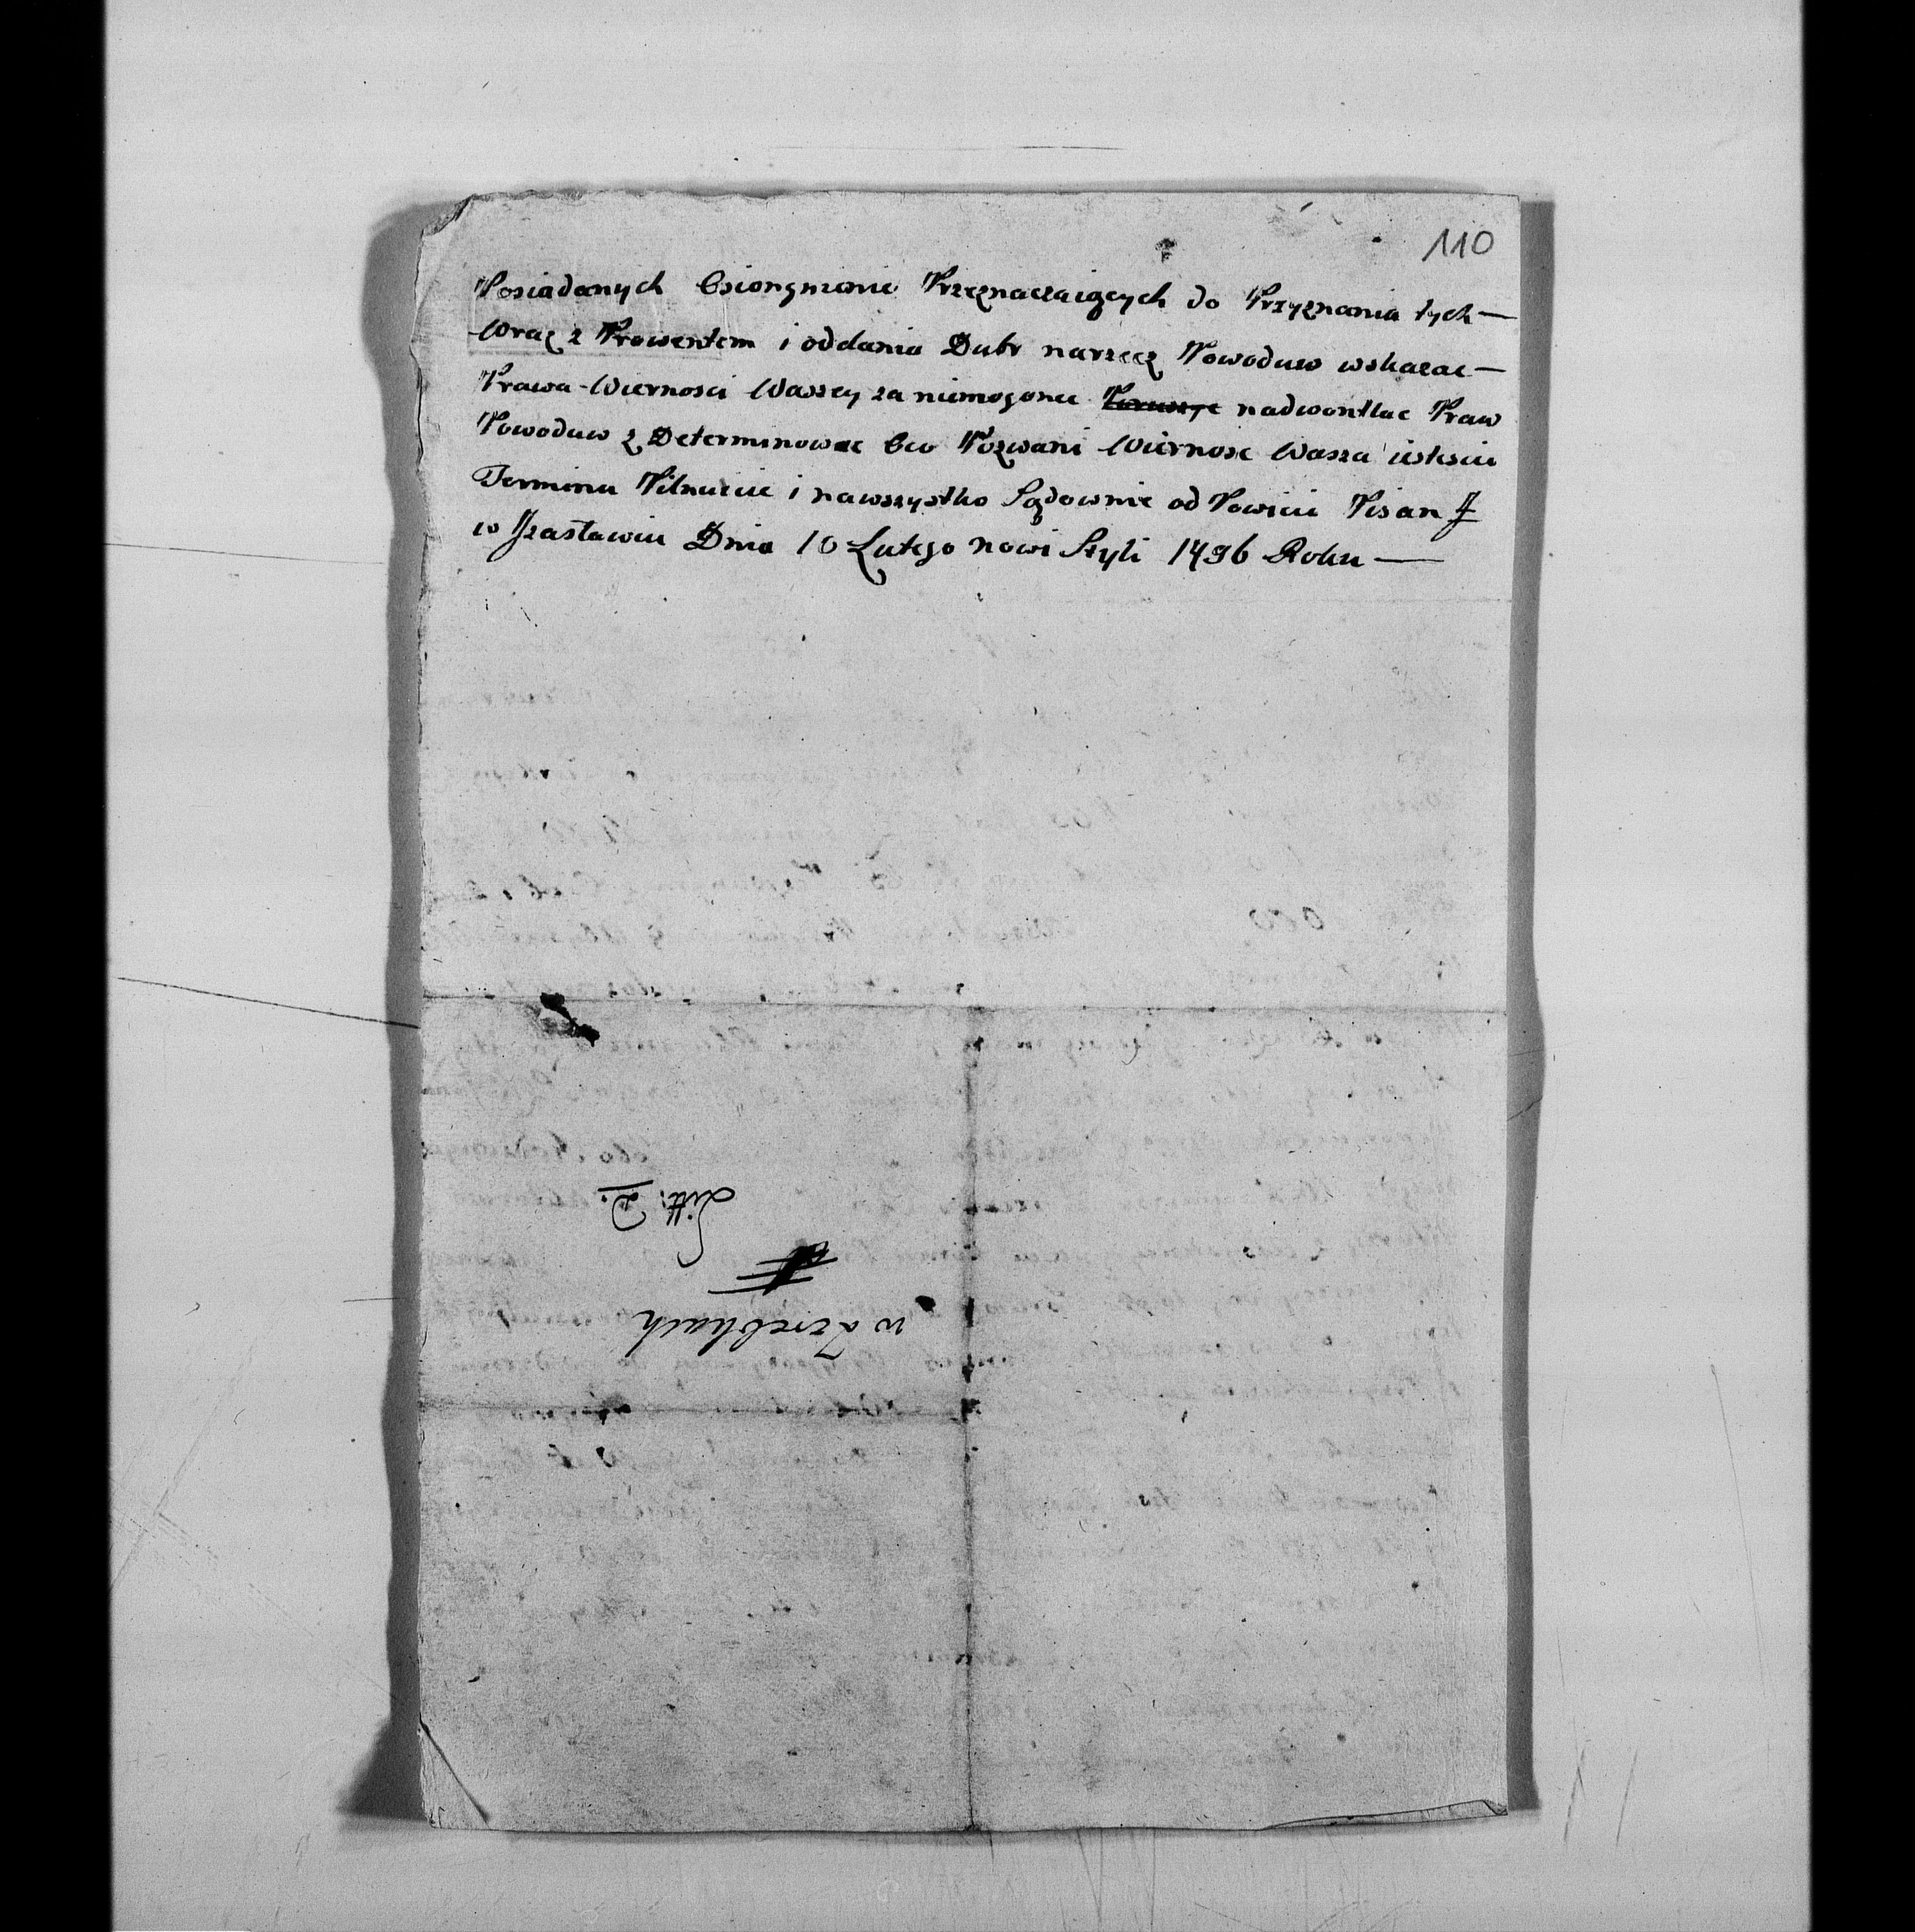 110
Posiadanych Osiongnienie Przeznaczaiących do Przyznania tych —
Wraz z Prowentem i oddania Dubr narzecz Powoduw wskazac —
Prawa Wiernosci Waszey za niemogonce nadwontlac Praw
Powoduw z Determinowac bco Pozwani Wiernosc Wasza iestescie
Terminu Pilnuicie i nawszystko Sądownie od Powicie Pisan
w Izaslawiu Dnia 10 Lutego nowi Styli 1796 Roku —
w Zrebkach
Litt: D.